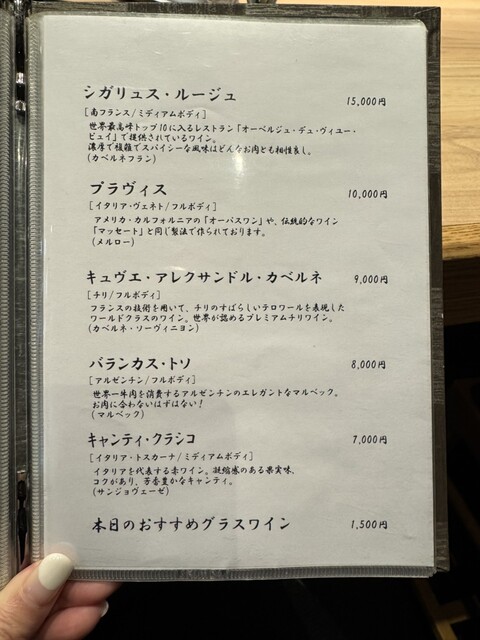 シガリュス・ルージュ 15,000円
[南フランス/ミディアムボディ]
世界最高峰トップ10に入るレストラン「オーベルジュ・デュ・ヴィユー・
ピュイ」で提供されているワイン。
濃厚で複雑でスパイシーな風味はどんなお肉とも相性良し。
(カベルネフラン)
プラヴィス 10,000円
[イタリア・ヴェネト/フルボディ]
アメリカ・カルフォルニアの「オーパスワン」や、伝統的なワイン
「マッセート」と同じ製法で作られております。
(メルロー)
キュヴエ・アレクサンドル・カベルネ 9,000円
[チリ/フルボディ]
フランスの技術を用いて、チリのすばらしいテロワールを表現した
ワールドクラスのワイン。世界が認めるプレミアムチリワイン。
(カベルネ・ソーヴィニヨン)
バランカス・トソ 8,000円
[アルゼンチン/フルボディ]
世界一牛肉を消費するアルゼンチンのエレガントなマルベック。
お肉に合わないはずはない!
(マルベック)
キャンティ・クラシコ 7,000円
[イタリア・トスカーナ/ミディアムボディ]
イタリアを代表する赤ワイン。凝縮感のある果実味、
コクがあり、芳香豊かなキャンティ。
(サンジョヴェーゼ)
本日のおすすめグラスワイン 1,500円